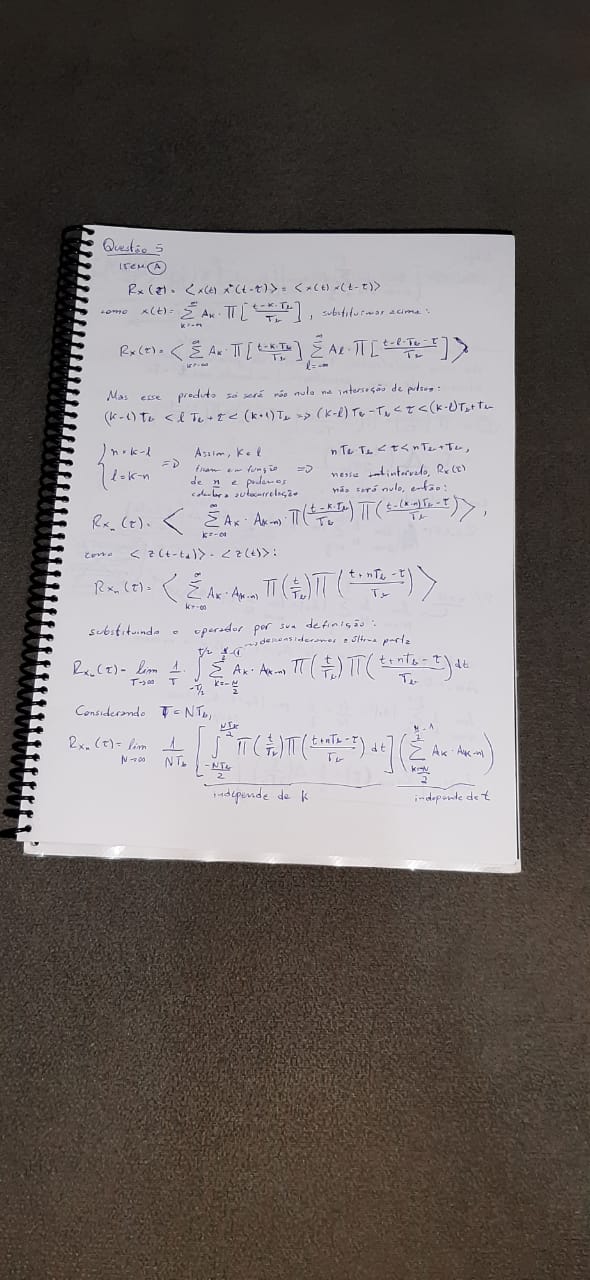 Questão 5
ITEM A
Rx(τ) = <x(t) x*(t-τ)> = <x(t) x(t-τ)>
como x(t) = ∑_{k=-∞}^{∞} Ak · Π[(t-k·Tb)/Tb], substituimos acima:
Rx(τ) = < ∑_{k=-∞}^{∞} Ak · Π[(t-k·Tb)/Tb] ∑_{l=-∞}^{∞} Al · Π[(t-l·Tb-τ)/Tb] >
Mas esse produto só será não nulo na interseção de pulsos:
(k-1)Tb < lTb+τ < (k+1)Tb => (k-l)Tb-Tb < τ < (k-l)Tb+Tb
{ n = k-l => Assim, k e l => nTb-Tb < τ < nTb+Tb,
l = k-n ficam em função nesse intervalo, Rx(τ)
de n e podemos não será nulo, então:
calcular a autocorrelação
Rxn(τ) = < ∑_{k=-∞}^{∞} Ak · A(k-n) · Π((t-k·Tb)/Tb) Π((t-(k-n)Tb-τ)/Tb) >,
como <z(t-td)> = <z(t)>:
Rxn(τ) = < ∑_{k=-∞}^{∞} Ak · A(k-n) Π(t/Tb) Π((t+nTb-τ)/Tb) >
substituindo o operador por sua definição:
desconsideramos a última parte
Rxn(τ) = lim_{T→∞} 1/T · ∫_{-T/2}^{T/2} ∑_{k=-N/2}^{N/2-1} Ak · A(k-n) Π(t/Tb) Π((t+nTb-τ)/Tb) dt
Considerando T = NTb,
Rxn(τ) = lim_{N→∞} 1/(NTb) [ ∫_{-NTb/2}^{NTb/2} Π(t/Tb) Π((t+nTb-τ)/Tb) dt ] ( ∑_{k=-N/2}^{N/2-1} Ak · A(k-n) )
independe de k independe de t